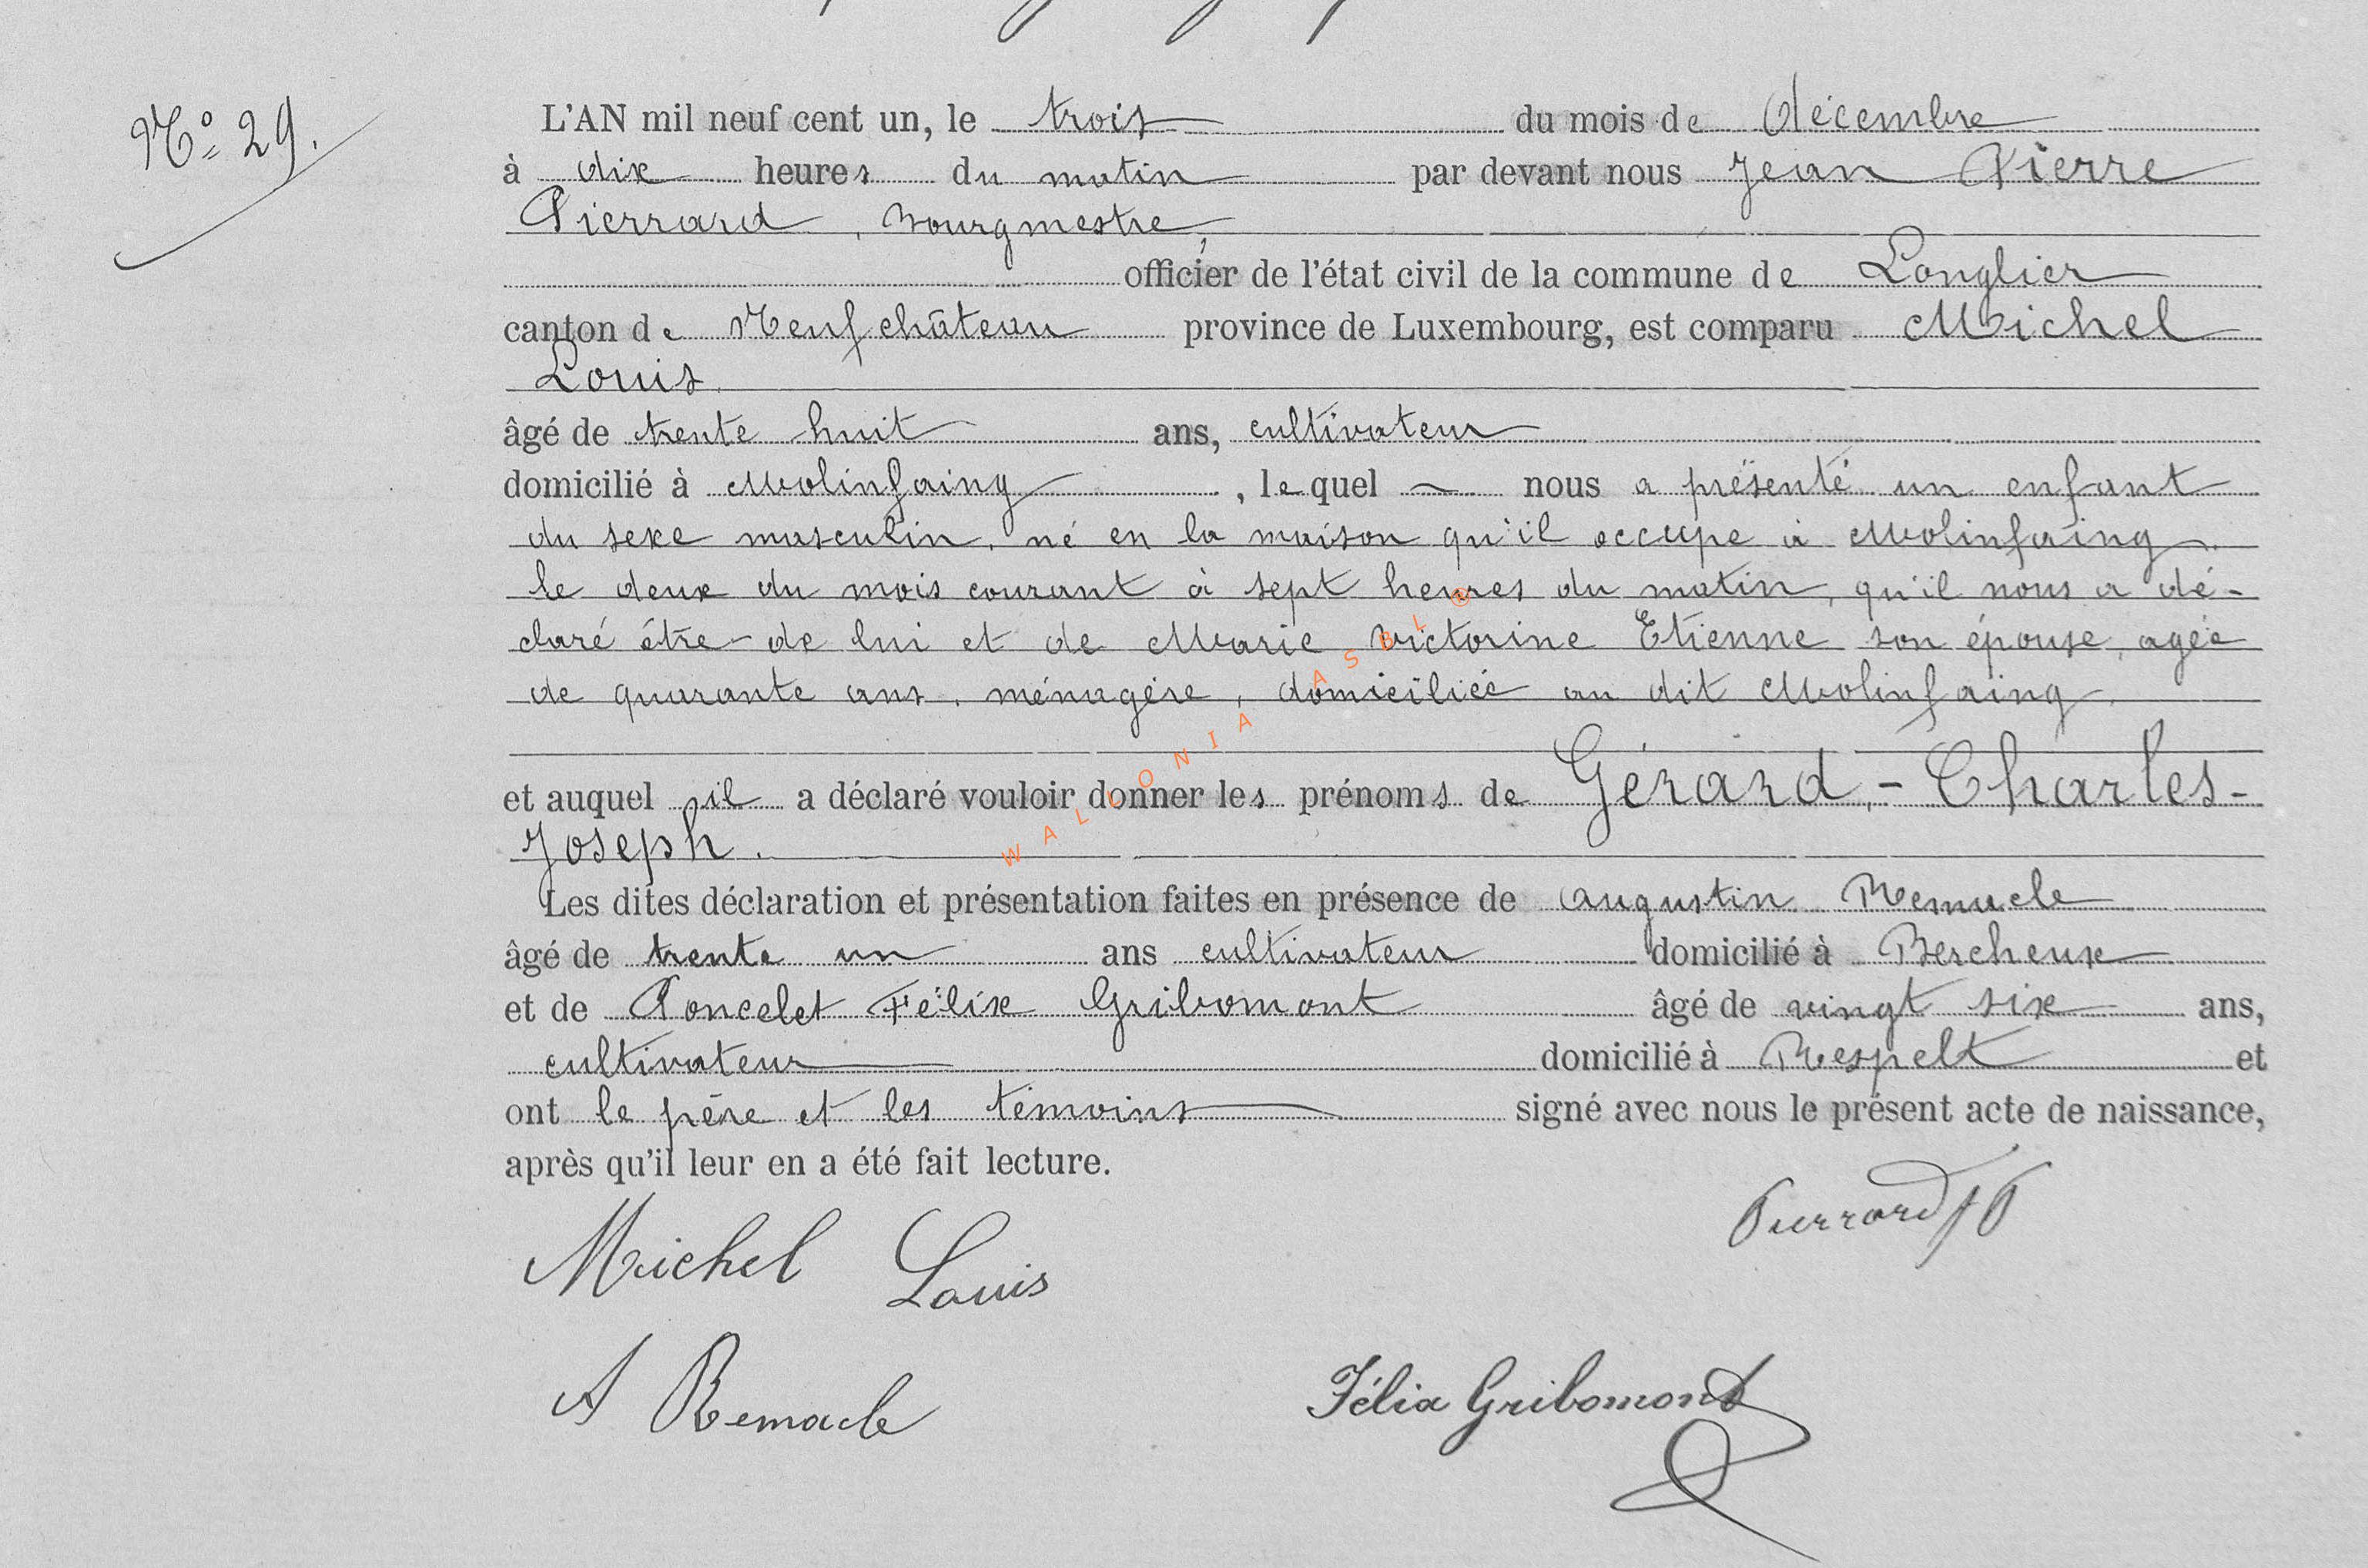 Nº 29.
L'AN mil neuf cent un, le trois du mois de décembre
à dix heures du matin par devant nous Jean Pierre
Pierrard, bourgmestre,
officier de l'état civil de la commune de Longlier
canton de Neufchâteau province de Luxembourg, est comparu Michel
Louis
âgé de trente huit ans, cultivateur
domicilié à Molinfaing, lequel ~ nous a présenté un enfant
du sexe masculin, né en la maison qu'il occupe à Molinfaing
le deux du mois courant à sept heures du matin, qu'il nous a dé-
claré être de lui et de Marie Victorine Etienne son épouse, agée
de quarante ans, ménagère, domiciliée au dit Molinfaing
et auquel il a déclaré vouloir donner les prénoms de Gérard,- Charles-
Joseph.
Les dites déclaration et présentation faites en présence de Augustin Remacle
âgé de trente un ans cultivateur domicilié à Bercheux
et de Poncelet Félix Gribomont âgé de vingt six ans,
cultivateur domicilié à Respelt et
ont le père et les témoins signé avec nous le présent acte de naissance,
après qu'il leur en a été fait lecture.
Pierrard JP
Michel Louis
A Remacle Félix Gribomont
WALLONIA ASBL ®